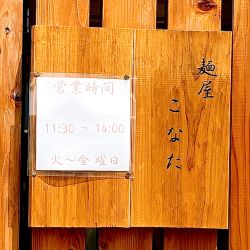 麺屋
こなた
営業時間
11:30 ～ 14:00
火～金曜日